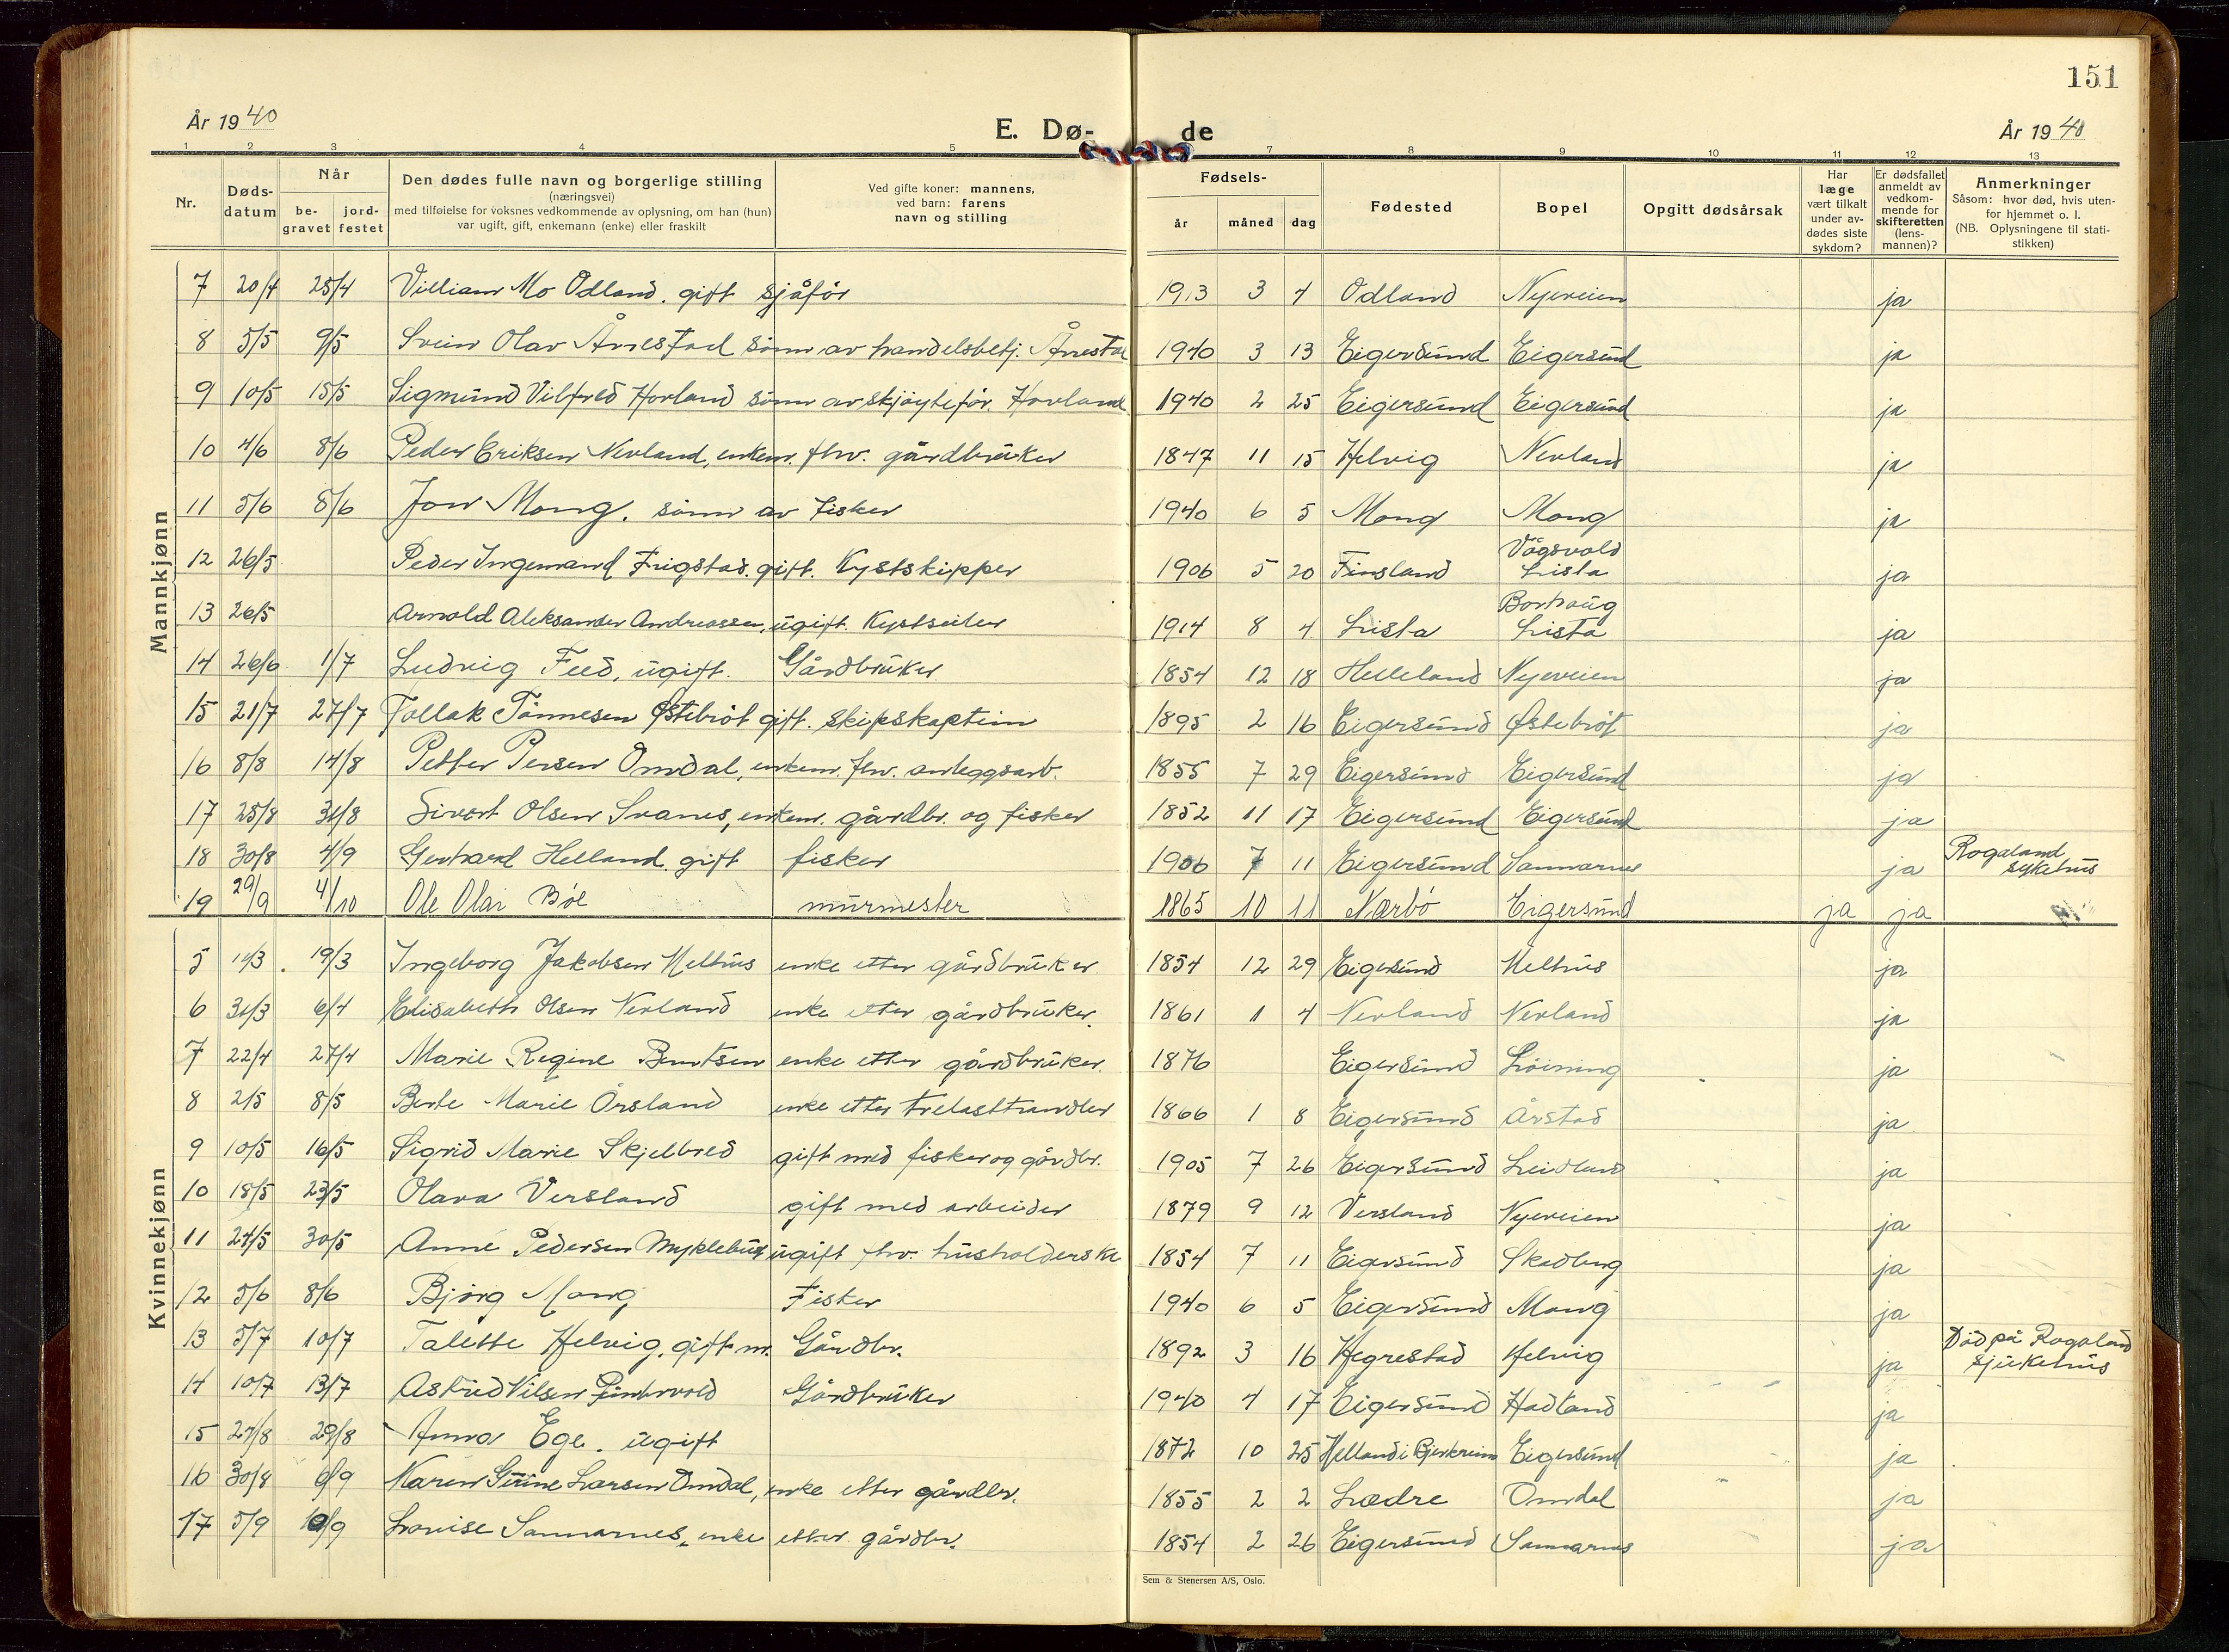 151
År 1940
E. Dø-
de
År 1940
1 2 3 4 5 7 8 9 10 11 12 13
Nr.
Døds-
datum
Når
be-
gravet
jord-
festet
Den dødes fulle navn og borgerlige stilling
(næringsvei)
med tilføielse for voksnes vedkommende av oplysning, om han (hun)
var ugift, gift, enkemann (enke) eller fraskilt
Ved gifte koner: mannens,
ved barn: farens
navn og stilling
Fødsels-
år måned dag
Fødested
Bopel
Opgitt dødsårsak
Har
læge
vært tilkalt
under av-
dødes siste
sykdom?
Er dødsfallet
anmeldt av
vedkom-
mende for
skifteretten
(lens-
mannen)?
Anmerkninger
Såsom: hvor død, hvis uten-
for hjemmet o. l.
(NB. Oplysningene til stati-
stikken)
Mannkjønn
7 20/4 25/4 Villiam Mo Odland. gift sjåfør 1913 3 4 Odland Nyeveien ja
8 5/5 9/5 Svein Olav Årrestad sønn av handelsbetj. Årrestad 1940 3 13 Eigersund Eigersund ja
9 10/5 15/5 Sigmund Vilfred Hovland sønn av skjøytefør. Hovland 1940 2 25 Eigersund Eigersund ja
10 4/6 8/6 Peder Eriksen Nevland, enkem. fhv. gårdbruker 1847 11 15 Helvig Nevland ja
11 5/6 8/6 Jon Mong. sønn av fisker 1940 6 5 Mong Mong ja
12 26/5 Peder Ingemand Frigstad. gift. Kystskipper 1906 5 20 Finsland Vågsvold Lista ja
13 26/5 Arnold Aleksander Andreassen, ugift. Kystseiler 1914 8 4 Lista Borhaug Lista ja
14 26/6 1/7 Ludvig Feed, ugift. Gårdbruker 1854 12 18 Helleland Nyeveien ja
15 21/7 27/7 Tollak Tønnesen Østebrøt gift. skipskaptein 1895 2 16 Eigersund Østebrøt ja
16 8/8 14/8 Petter Persen Omdal, enkem. fhv. anleggsarb. 1855 7 29 Eigersund Eigersund ja
17 25/8 31/8 Sivert Olsen Svanes, enkem. gårdbr. og fisker 1852 11 17 Eigersund Eigersund ja
18 30/8 4/9 Gerhard Helland. gift fisker 1906 7 11 Eigersund Sannarnes ja Rogaland sykehus
19 29/9 4/10 Ole Olai Bøe murmester 1865 10 11 Nærbø Eigersund ja ja
Kvinnekjønn
5 14/3 19/3 Ingeborg Jakobsen Melhus enke etter gårdbruker 1854 12 29 Eigersund Melhus ja
6 31/3 6/4 Elisabeth Olsen Nevland enke etter gårdbruker. 1861 1 4 Nevland Nevland ja
7 22/4 27/4 Marie Regine Berntsen enke etter gårdbruker. 1876 Eigersund Løining ja
8 2/5 8/5 Berte Marie Årsland enke etter trelasthandler 1866 1 8 Eigersund Årstad ja
9 10/5 16/5 Sigrid Marie Skjelbred gift med fisker og gårdbr. 1905 7 26 Eigersund Leidland ja
10 18/5 23/5 Olava Versland gift med arbeider 1879 9 12 Versland Nyeveien ja
11 24/5 30/5 Anne Pedersen Myklebust ugift fhv. husholderske 1854 7 11 Eigersund Skadberg ja
12 5/6 8/6 Bjørg Mong Fisker 1940 6 5 Eigersund Mong ja
13 5/7 10/7 Talette Helvig, gift m. Gårdbr. 1892 3 16 Hegrestad Helvig ja Død på Rogaland sjukehus
14 10/7 13/7 Astrid Nilsen Gårdbruker 1940 4 17 Eigersund Hadland ja
15 24/8 29/8 Anna Ege. ugift 1872 10 25 Helland i Bjerkreim Eigersund ja
16 30/8 6/9 Karen Larsen Omdal, enke etter gårdbr. 1855 2 2 Lædre Omdal ja
17 5/9 10/9 Lovise Sannarnes, enke etter gårdbr. 1854 2 26 Eigersund Sannarnes ja
Sem & Stenersen A/S, Oslo.